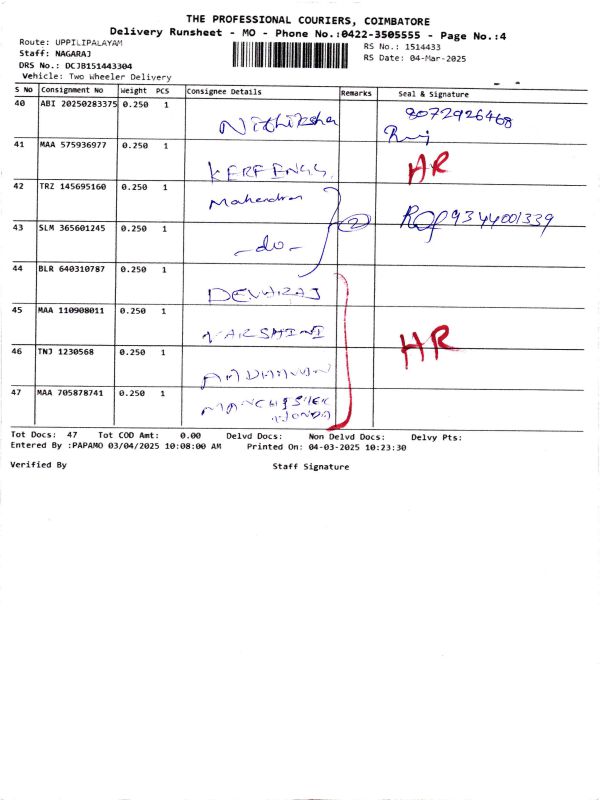 THE PROFESSIONAL COURIERS, COIMBATORE
Delivery Runsheet - MO - Phone No.:0422-3505555 - Page No.:4
Route: UPPILIPALAYAM
Staff: NAGARAJ
DRS No.: DCJB151443304
Vehicle: Two Wheeler Delivery
RS No.: 1514433
RS Date: 04-Mar-2025
S No Consignment No Weight PCS Consignee Details Remarks Seal & Signature
40 ABI 20250283375 0.250 1 Nithiksha 8072926468
41 MAA 575936977 0.250 1 HR
42 TRZ 145695160 0.250 1 Mahendran
43 SLM 365601245 0.250 1 -do- 2 9344001339
44 BLR 640310787 0.250 1 DEVARAJ
45 MAA 110908011 0.250 1 VARSHINI HR
46 TNJ 1230568 0.250 1
47 MAA 705878741 0.250 1
Tot Docs: 47 Tot COD Amt: 0.00 Delvd Docs: Non Delvd Docs: Delvy Pts:
Entered By :PAPAMO 03/04/2025 10:08:00 AM Printed On: 04-03-2025 10:23:30
Verified By Staff Signature